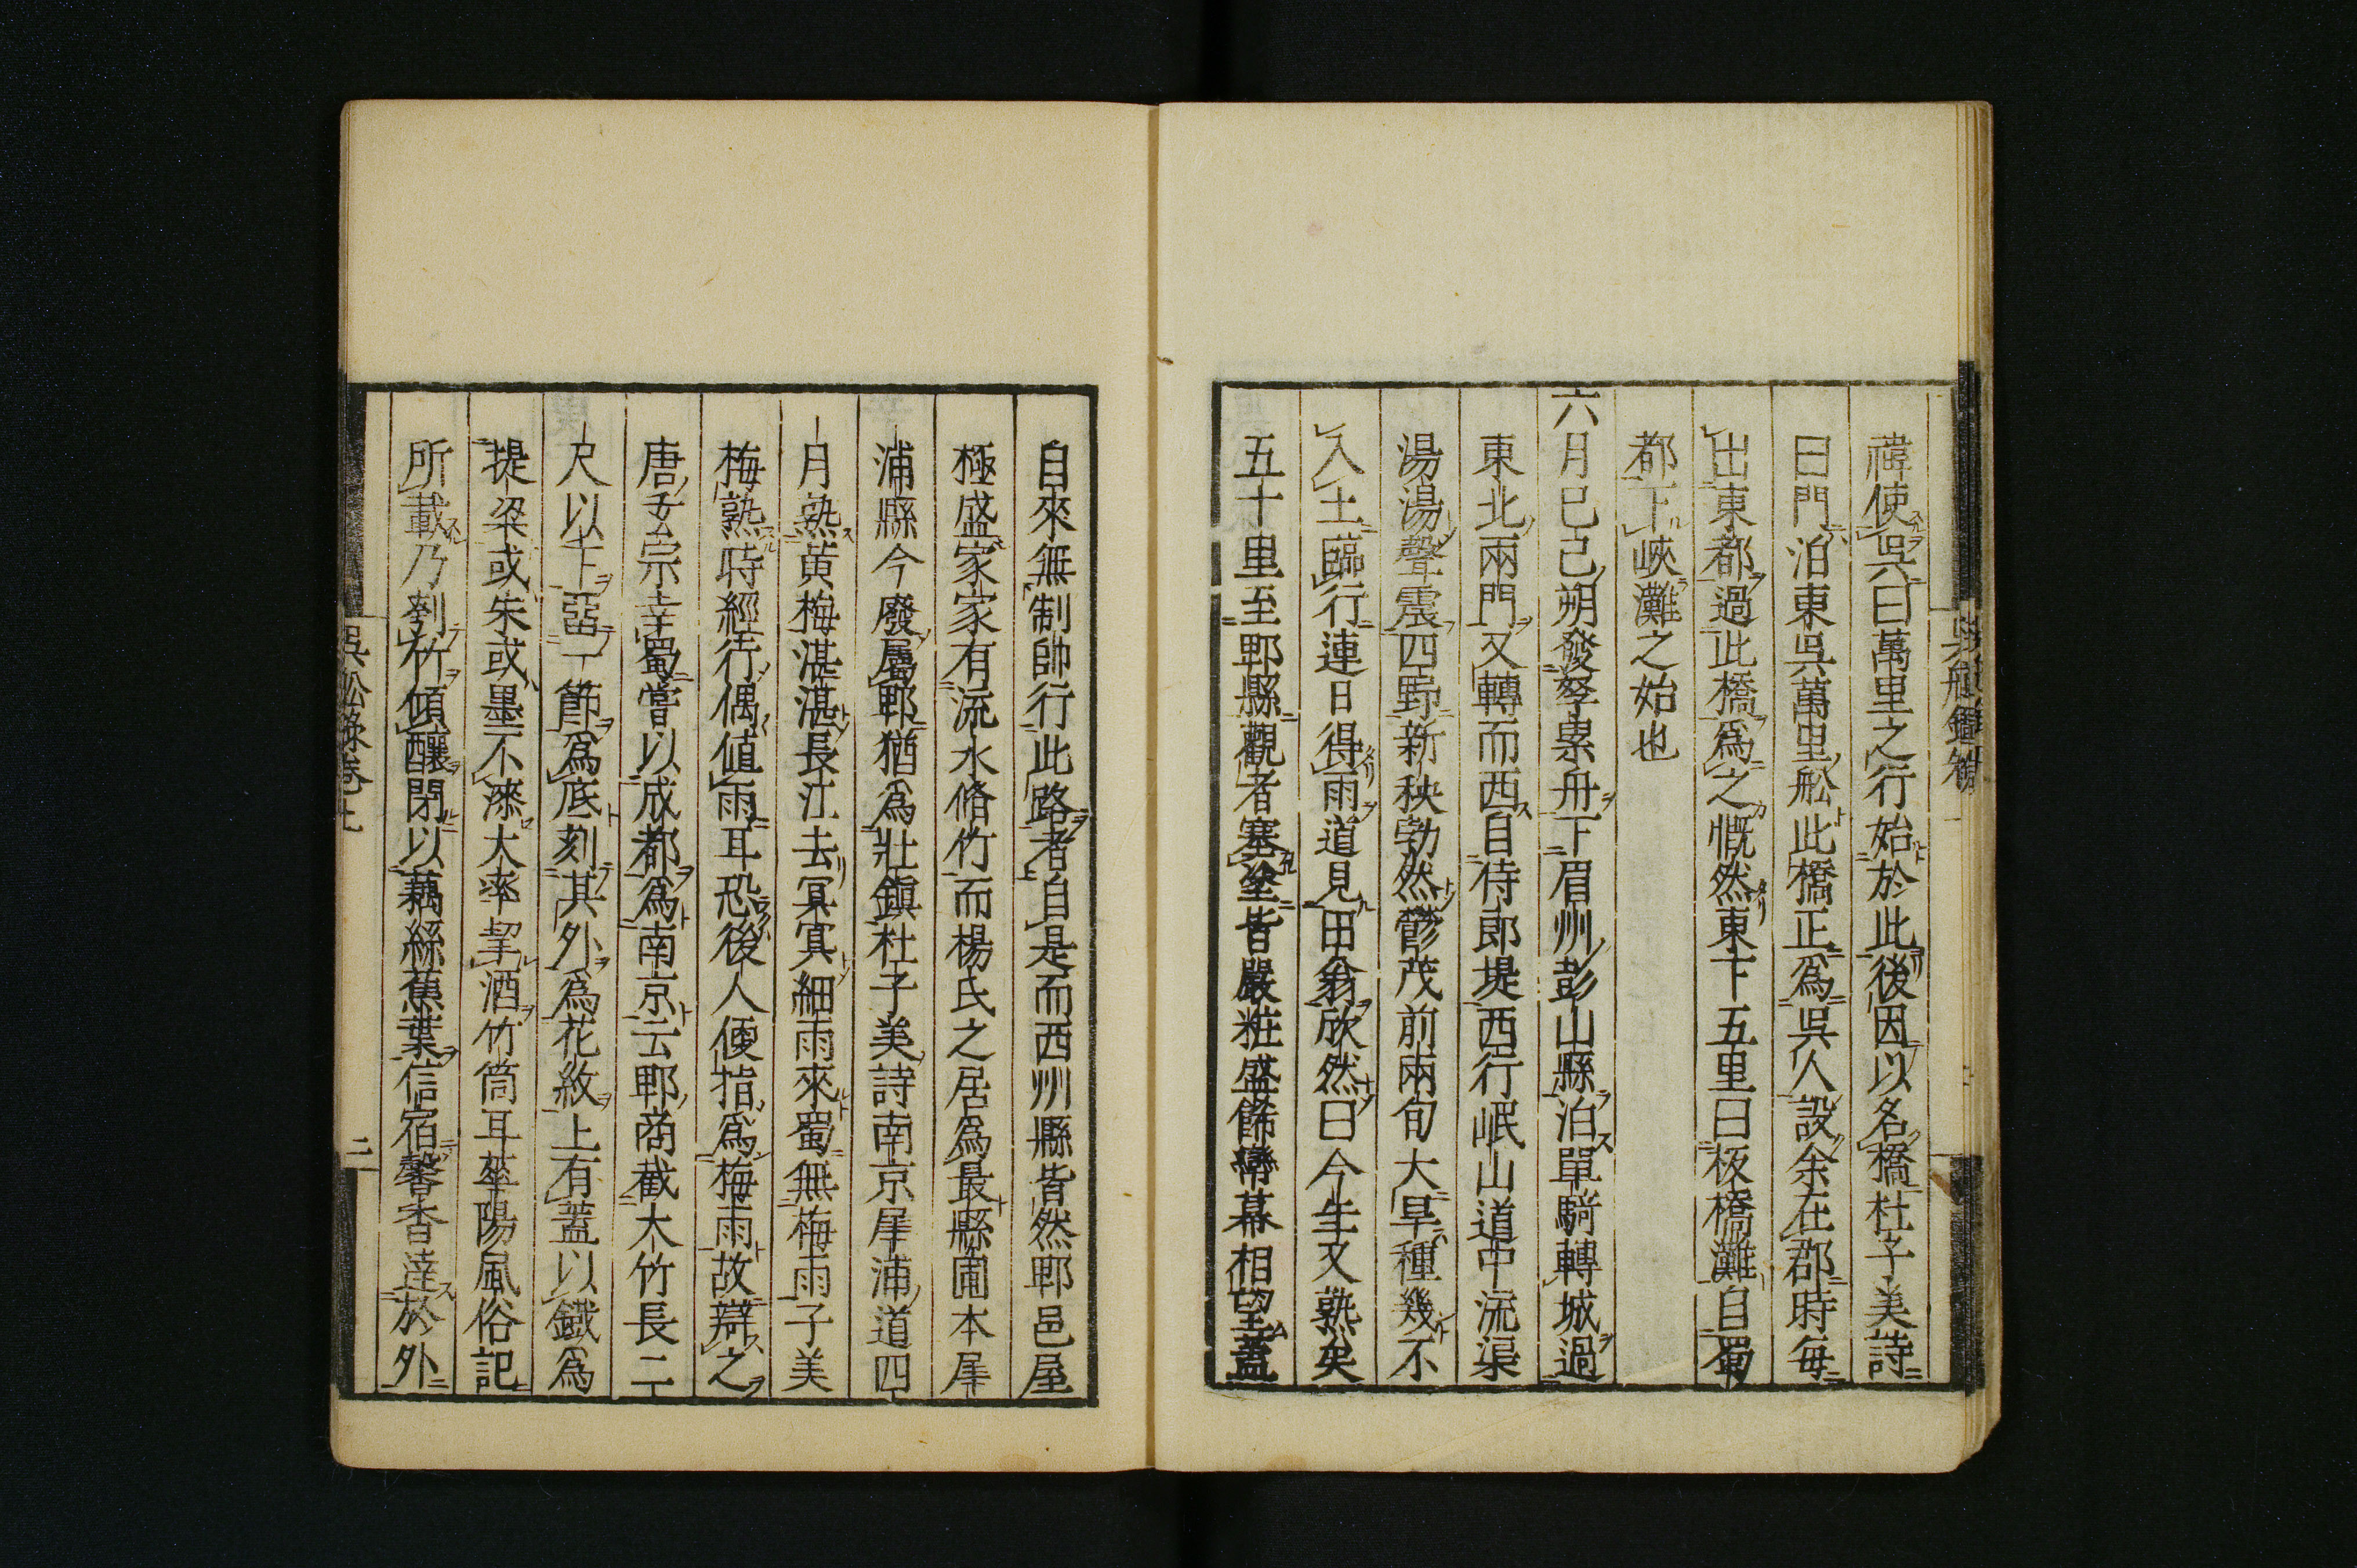 禕使吳曰萬里之行始於此後因以名橋杜子美詩
曰門泊東吳萬里舩此橋正為吳人設余在郡時每
出東都過此橋爲之慨然東下五里曰板橋灘自蜀
都下峽灘之始也
六月巳己朔發孥累舟下眉州彭山縣泊單騎轉城過
東北兩門又轉而西自侍郎堤西行岷山道中流渠
湯湯聲震四野新秧勃然鬱茂前兩旬大旱種幾不
入土臨行連日得雨道見田翁欣然曰今年又熟矣
五十里至郫縣觀者塞塗皆嚴粧盛飾帟幕相望蓋
自來無制帥行此路者自是而西州縣皆然郫邑屋
極盛家家有流水脩竹而楊氏之居爲最縣圃本犀
浦縣今廢屬郫猶爲壯鎮杜子美詩南京犀浦道四
月熟黃梅湛湛長江去冥冥細雨來蜀無梅雨子美
梅熟時經行偶値雨耳恐後人便指爲梅雨故辯之
唐玄宗幸蜀嘗以成都爲南京云郫商截大竹長二
尺以下留一節爲底刻其外爲花紋上有蓋以鐵爲
提梁或朱或墨不漆大率挈酒竹筒耳華陽風俗記
所載乃刳竹傾釀閉以藕絲蕉葉信宿馨香達於外
吳舩錄卷上
二